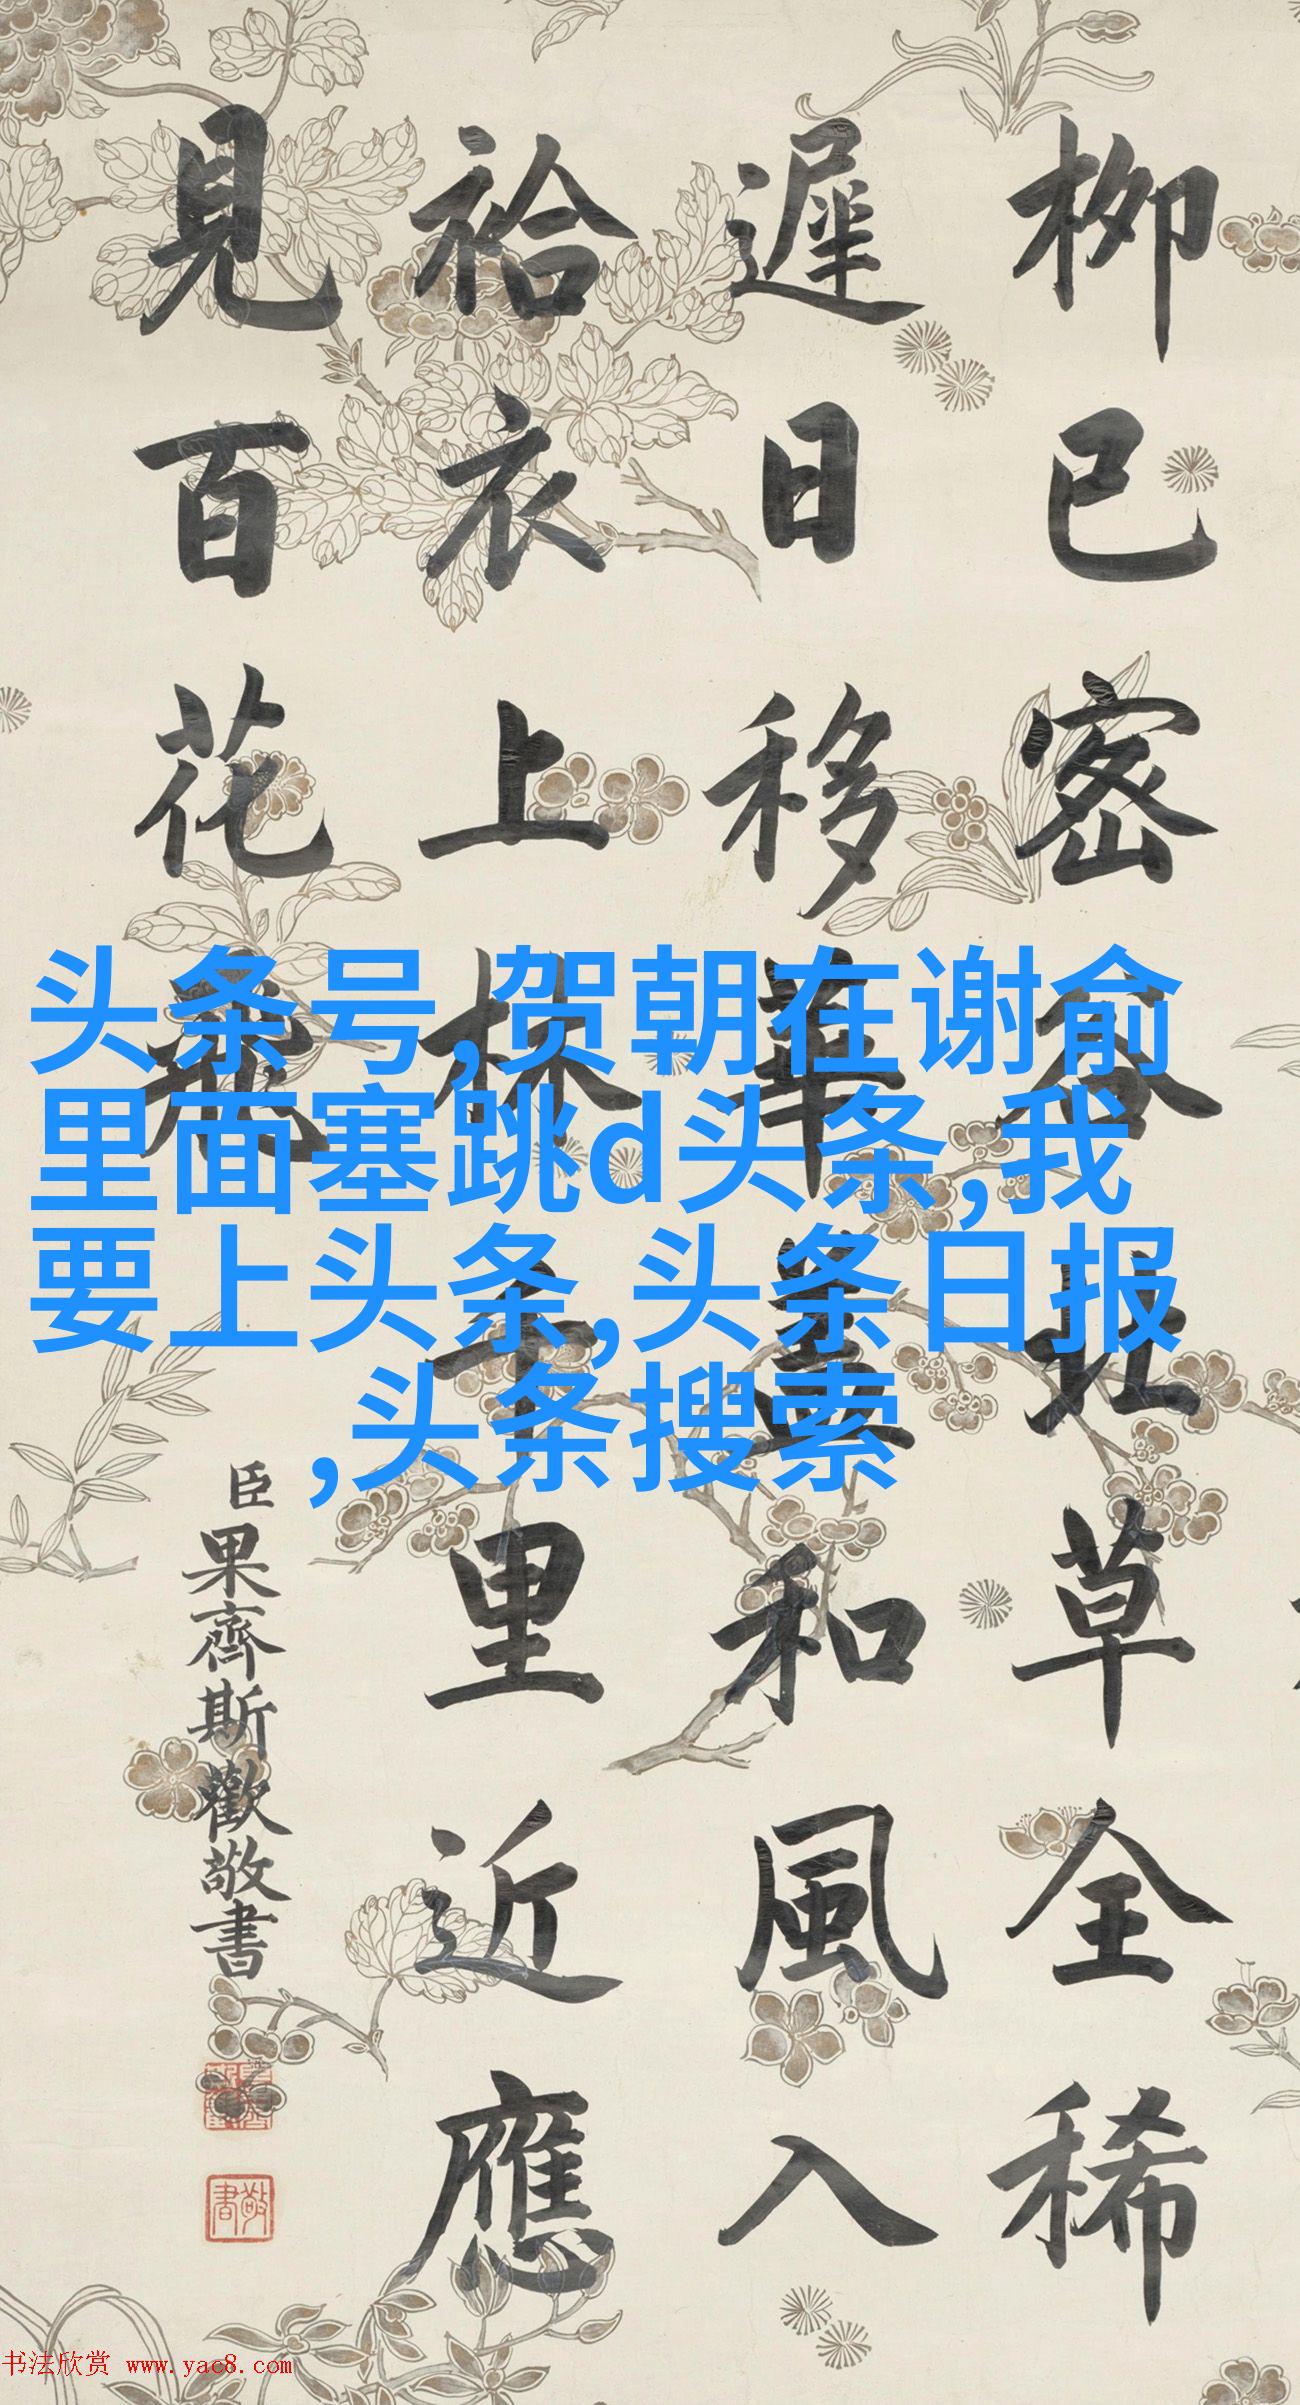 柳已密谷北草全稀
遲日移華蓋和風入
袷衣上林千里近應
見百花飛
臣果齊斯歡敬書
敬書
头条号,贺朝在谢俞
里面塞跳d头条,我
要上头条,头条日报
,头条搜索
书法欣赏 www.yac8.com